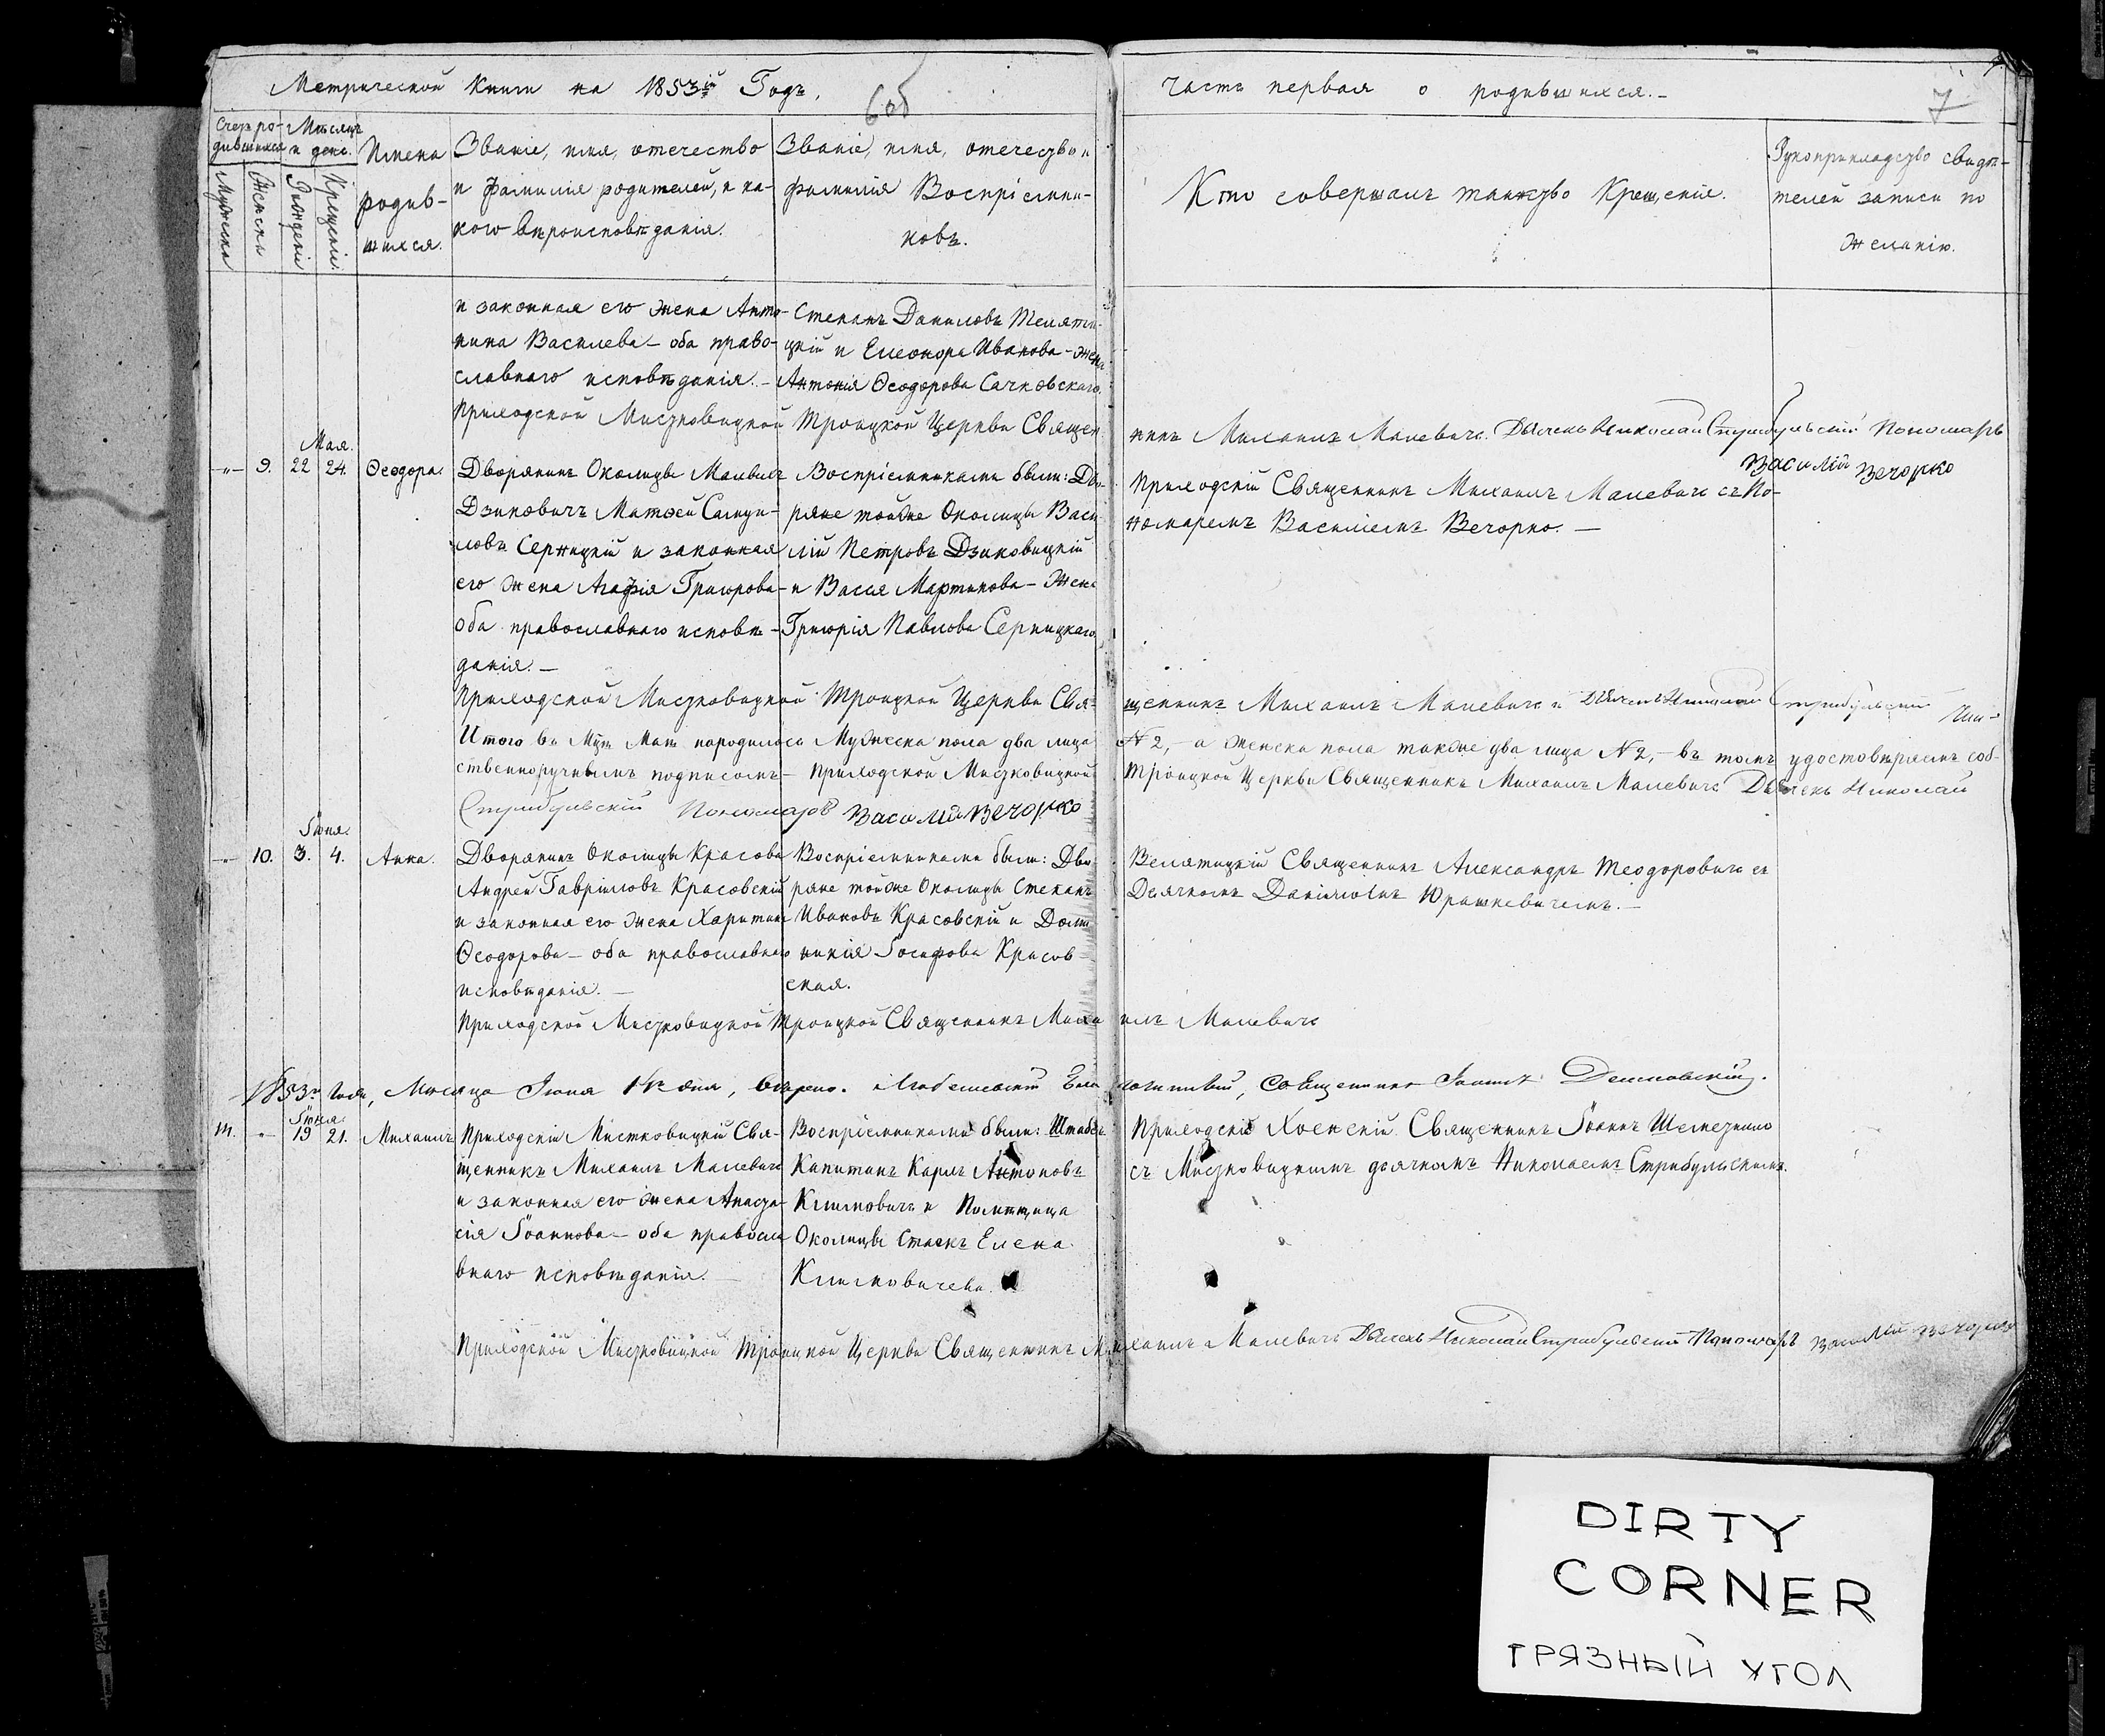 Метрической Книги на 1853й Годъ,
6об
Счетъ ро-
дившихся
Мѣсяцъ
и день.
Мужеска
Женска
Рожденія
Крещенія
Имена
родив-
шихся.
Званіе, имя, отечество
и фамилія родителей, и ка-
кого вѣроисповѣданія.
Званіе, имя, отечество и
фамилія Воспріемни-
ковъ.
часть первая о родившихся.-
7
Кто совершалъ таинство Крещенія.
Рукоприкладство свидѣ-
телей записи по
желанію.
и законная его жена Анто-
нина Василева - оба право-
славнаго исповѣданія. -
Степанъ Даниловъ Теляти-
цкій и Елеонора Иванова - жена
Антонія Ѳеодорова Сачковскаго.
Приходской Мистковицкой Троицкой Церкви Священ
никъ Михаилъ Малевичъ. Дьячекъ Николай Стрибульскій Пономарь
Василій Вечорко
Мая.
-"- 9. 22 24. Ѳеодора.
Дворянинъ Околицы Малыхъ
Дзиковичъ Матѳей Самуи-
ловъ Серницкій и законная
его жена Агафія Григорова -
оба православнаго исповѣ-
данія. -
Воспріемниками были: Дво-
ряне тойже Околицы Васи
лій Петровъ Дзиковицкій
и Васса Мартинова - Жена
Григорія Павлова Серницкаго
Приходскій Священникъ Михаилъ Малевичъ съ По-
номаремъ Василіемъ Вечорко. -
Приходской Мистковицкой Троицкой Церкви Свя-
щенникъ Михаилъ Малевичъ Дьячекъ Николай Стрибульскій
Итого въ Мцѣ Маѣ народилось Мужеска пола два лица
N 2, - а женска пола также два лица N 2, - въ томъ удостовѣряемъ соб-
ственноручнымъ подписомъ - Приходской Мистковицкой
Троицкой Церкви Священникъ Михаилъ Малевичъ Дьячекъ Николай
Стрибульскій Пономарь Василій Вечорко
Іюня.
-"- 10. 3. 4. Анна.
Дворянинъ Околицы Красова
Андрей Гавріиловъ Красовскій
и законная его жена Харитина
Ѳеодорова - оба православнаго
исповѣданія. -
Воспріемниками были: Дво
ряне тойже Околицы Степанъ
Ивановъ Красовскій и Доми
никія Іосифова Красов-
ская.
Велятицкій Священникъ Александръ Теодоровичъ съ
Дьячкомъ Даніиломъ Юрашкевичемъ. -
Приходской Мистковицкой Троицкой Священникъ Миха
илъ Малевичъ
1853го Года, Месяца Іюня 14го дня, вѣрено.
Священникъ Іоаннъ
Іюня.
111. -"- 19 21. Михаилъ
Приходскій Мистковицкій Свя-
щенникъ Михаилъ Малевичъ
и законная его жена Анаста-
сія Іоаннова - оба правосла
внаго исповѣданія. -
Воспріемниками были: Штабсъ
Капитанъ Карлъ Антоновъ
Климовичъ и Помѣщица
Околицы Ставкъ Елена
Климовичева.
Приходскій Хоенскій Священникъ Іоаннъ
съ Мистковицкимъ дьячкомъ Николаемъ Стрибульскимъ.
Приходской Мистковицкой Троицкой Церкви Священникъ Михаилъ Малевичъ Дьячекъ Николай Стрибульскій Пономарь Василій Вечорко
DIRTY
CORNER
ГРЯЗНЫЙ УГОЛ